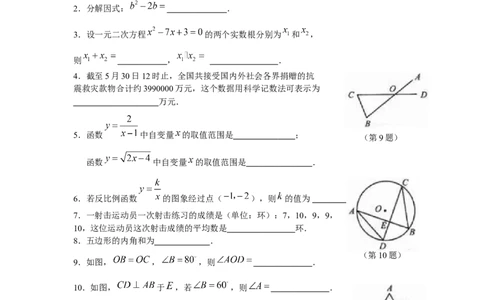 2．分解因式：b² − 2b= ．
3．设一元二次方程 x² − 7x + 3 = 0 的两个实数根分别为 x₁ 和 x₂，
则 x₁ + x₂ = ，x₁ x₂ = ．
4．截至5月30日12时止，全国共接受国内外社会各界捐赠的抗
震救灾款物合计约3990000万元，这个数据用科学记数法可表示为
万元．
5．函数 y = 2/(x−1) 中自变量 x 的取值范围是 ；
函数 y = √(2x−4) 中自变量 x 的取值范围是 ．
6．若反比例函数 y = k/x 的图象经过点（−1,−2），则 k 的值为
7．一射击运动员一次射击练习的成绩是（单位：环）：7，10，9，9，
10，这位运动员这次射击成绩的平均数是 环．
8．五边形的内角和为 ．
9．如图，OB = OC，∠B = 80°，则 ∠AOD = ．
10．如图，CD ⊥ AB 于 E，若 ∠B = 60°，则 ∠A = ．
A
C O D
B
（第 9 题）
C
A O
E
B
D
（第 10 题）
A